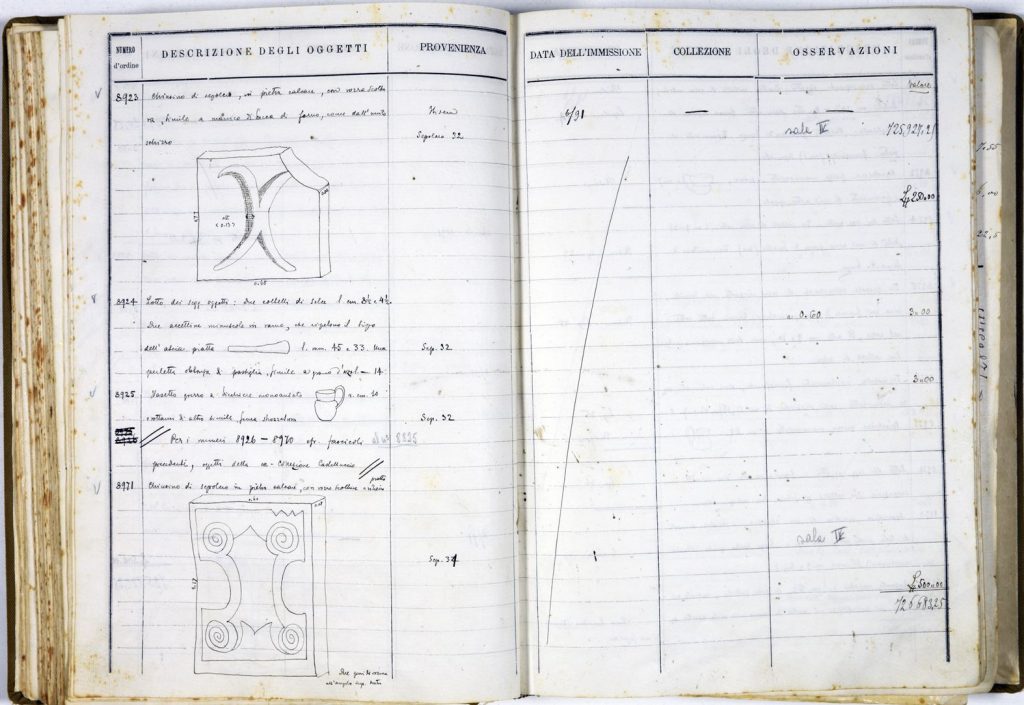 NUMERO d'ordine
DESCRIZIONE DEGLI OGGETTI
PROVENIENZA
DATA DELL'IMMISSIONE
COLLEZIONE
OSSERVAZIONI
Valore
8923
Chiusino di sepolcro, in pietra calcare, con rozza scoltu
ra, simile a manico di bocca di forno, come dall'unito
schizzo
Sepolcro 32
6/91
— —
sala IV
725,927,21
£ 250.00
0.68
8924 Lotto dei segg. oggetti: Due coltelli di selce l. cm. 8½ e 4½.
Due accettine minuscole in rame, che ripetono il tipo
dell'ascia piatta l. mm. 45 e 33. Una
perletta oblunga di pastiglia, simile a grano d'orzo l. — 14
Sep. 32
0.60
3.00
8925 Vasetto grezzo a bicchiere monoansato a. cm. 10
rottami di altro simile, senza
Sep. 32
3.00
Per i numeri 8926 – 8970 cfr. fascicolo al n° 8225
precedenti, oggetti della ex-Collezione Castelluccio
8971 Chiusino di sepolcro in pietra calcare, con rozze scolture
Sep. 34
sala IV
£ 500.00
726683,25
Due
all'angolo sup. destro
7.55
5,00
22,5